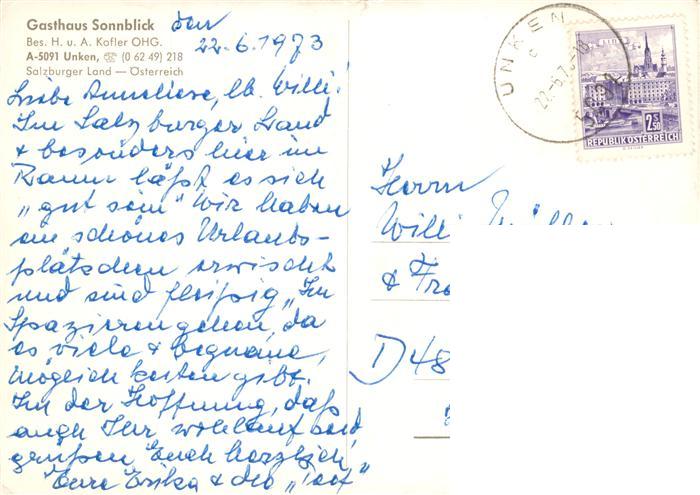 Gasthaus Sonnblick
Bes. H. u. A. Kofler OHG.
A-5091 Unken, ☎ (0 62 49) 218
Salzburger Land — Österreich
den
22.6.1973
Liebe Anneliese, lb. Willi!
Im Salzburger Land
+ besonders hier im
Raum läßt es sich
„gut sein" Wir haben
ein schönes Urlaubs-
plätzchen erwischt
und sind fleißig „Im
Spazieren gehen, da
es viele + bequeme,
Möglichkeiten gibt.
In der Hoffnung, daß
auch Ihr wohlauf seid
grüßen Euch herzlich
Eure Erika & der
UNKEN
22.-6.7
2.50
S
REPUBLIK ÖSTERREICH
Herrn
Willi
& Fr
D 48